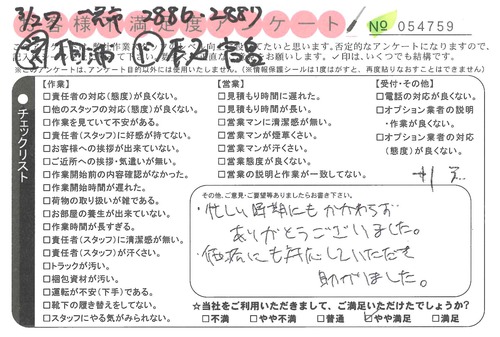 3/27 2886-2887
お客様不満足度アンケート
№ 054759
※このアンケートは、アンケート目的以外には使用いたしません。(※情報保護シールは1度はがすと、再度貼りなおすことはできません)
チェックリスト
【作業】
□責任者の対応(態度)が良くない。
□他のスタッフの対応(態度)が良くない。
□作業を見ていて不安がある。
□責任者(スタッフ)に好感が持てない。
□お客様への挨拶が出来ていない。
□ご近所への挨拶・気遣いが無い。
□作業開始前の内容確認がなかった。
□作業開始時間が遅れた。
□荷物の取り扱いが雑である。
□お部屋の養生が出来ていない。
□作業時間が長すぎる。
□責任者(スタッフ)に清潔感が無い。
□責任者(スタッフ)が汗くさい。
□トラックが汚い。
□梱包資材が汚い。
□運転が不安(下手)である。
□靴下の履き替えをしてない。
□スタッフにやる気がみられない。
【営業】
□見積もり時間に遅れた。
□見積もり時間が長い。
□営業マンに清潔感が無い。
□営業マンが煙草くさい。
□営業マンが汗くさい。
□営業態度が良くない。
□営業の説明と作業が一致してない。
【受付・その他】
□電話の対応が良くない。
□オプション業者の説明
・作業が良くない。
□オプション業者の対応
(態度)が良くない。
その他、ご意見・ご要望等ありましたらお書き下さい。
・忙しい時期にもかかわらず
ありがとうございました。
・価格にも対応していただき
助かりました。
☆当社をご利用いただきまして、ご満足いただけたでしょうか?
□不満 □やや不満 □普通 ☑やや満足 □満足